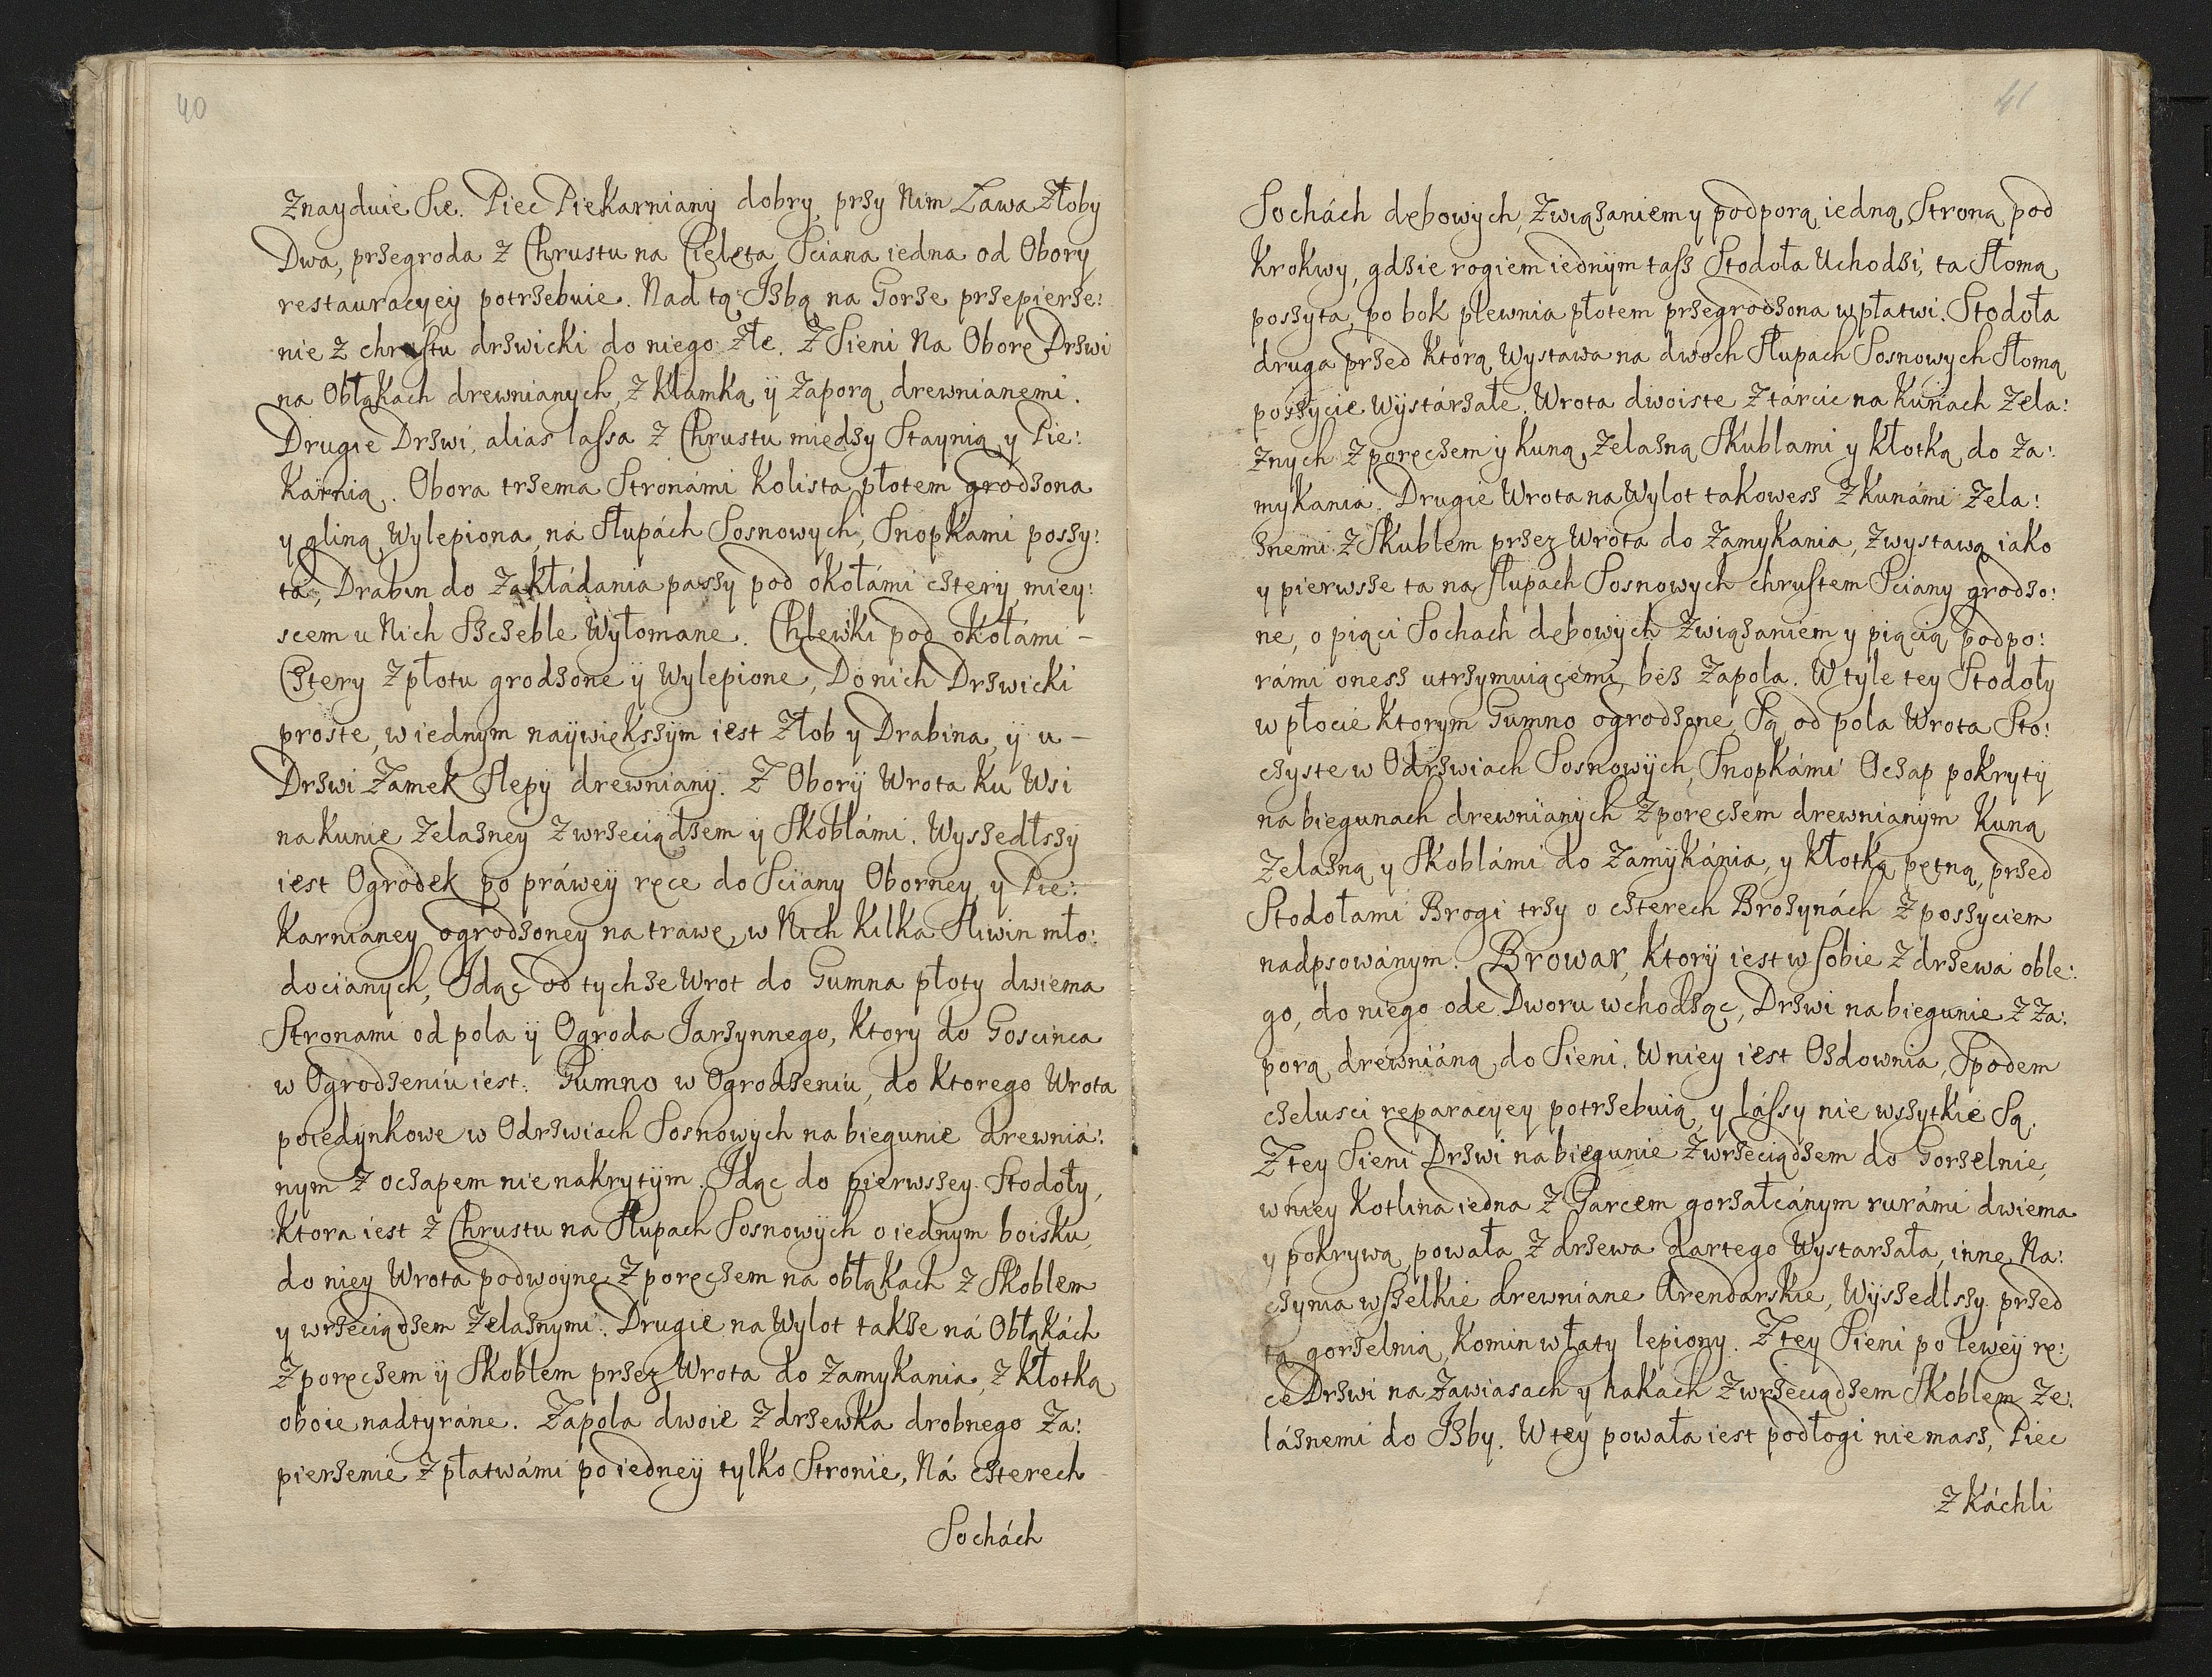 40
Znayduie Sie. Piec Piekarniany dobry, przy Nim Ława Żłoby
Dwa, przegroda z Chrustu na Cielęta Sciana iedna od Obory
restauracyey potrzebuie. Nad tą Jzbą na Gorze przepierze:
nie z chrustu drzwicki do niego złe. Z Sieni Na Oborę Drzwi
na Obłąkach drewnianych, z Klamką ÿ Zaporą drewnianemi.
Drugie Drzwi, alias lassa z Chrustu miedzy Staynią y Pie:
Karnią. Obora trzema Stronámi Kolista płotem grodzona
y gliną Wylepiona, ná Słupách Sosnowych, Snopkami poszy:
tá, Drabin do Zakłádania paszy pod okołámi cztery, miey:
scem u Nich Szczeble Wyłomane. Chlewki pod okołámi –
Cztery Z płotu grodzone ÿ Wylepione, Do nich Drzwicki
proste, w iednym naÿwiekszÿm iest Złob y Drabina, ÿ u –
Drzwi Zamek slepÿ drewnianÿ. Z Oborÿ Wrota Ku Wsi
na Kunie Zelazney Z wrzeciądzem ÿ Skoblámi. Wyszedłszÿ
iest Ogrodek po práweÿ ręce do Sciany Oborney, y Pie:
Karnianey ogrodzoney na trawę, w Nich Kilka Sliwin mło:
docianych, Jdąc od tychze Wrot do Gumna płoty dwiema
Stronami od pola ÿ Ogroda Jarzynnego, Ktory do Goscinca
w Ogrodzeniu iest. Gumno w Ogrodzeniu, do Ktorego Wrota
poiedynkowe w Odrzwiach Sosnowych na biegunie drewniá:
nym Z oczapem nie nakrytÿm. Jdąc do pierwszey Stodoły,
Ktora iest z Chrustu na Słupach Sosnowÿch o iednym boisku,
do niey Wrota podwoyne Z poręczem na obłąkach z Skoblem
y wrzeciądzem Zelaznymi. Drugie na Wylot takze ná Obłąkách
Z poręczem ÿ Skoblem przez Wrota do Zamykania, z Kłotką
oboie nadtyráne. Zapola dwoie Z drzewka drobnego Za:
pierzenie Z płatwámi po iedneÿ tylko Stronie, Ná czterech
Sochách
41
Sochách dębowych, Związaniem y podporą iedną, Stroną pod
Krokwy, gdzie rogiem iednÿm tasz Stodoła Uchodzi, ta Słomą
poszyta, po bok plewnia płotem przegrodzona w płatwi. Stodoła
druga przed Ktorą Wystawa na dwoch Słupach Sosnowych Słomą
poszycie Wÿstárzałe, Wrota dwoiste Z tárcic na Kunach Zela:
znych Z poręczem ÿ Kuną, Zelazną Skublami y Kłotką do Za:
mykania. Drugie Wrota na Wylot takowesz Z Kunámi Zela:
znemi Z Skublem przez Wrota do Zamykania, Z wystawą iako
y pierwsze ta na słupach Sosnowych chrustem Sciany grodzo:
ne, o piąci Sochach dębowych Związaniem y piącią podpo:
rámi onesz utrzymuiącemi, bez Zapola. W tyle tey Stodoły
w płocie Ktorym Gumno ogrodzone, Są od pola Wrota Sto:
czyste w Odrzwiach Sosnowÿch, Snopkámi Oczap pokrytÿ
na biegunach drewnianych Z poręczem drewnianym Kuną
Zelazną y Skoblámi do Zamÿkánia, y Kłotką pętną, przed
Stodołami Brogi trzy o czterech Brozynách Z poszyciem
nadpsowánym. Browar, Ktorÿ iest w sobie Z drzewa oble:
go, do niego ode Dworu wchodząc, Drzwi na biegunie Z Za:
porą drewnianą, do Sieni. W niey iest Ozdownia, Spodem
czelusci reparacyey potrzebuią, y lássy nie wszytkie Są.
Z tey Sieni Drzwi na biegunie Z wrzeciądzem do Gorzelnie,
w niey Kotlina iedna Z Garcem gorzałcánym rurámi dwiema
y pokrywą, powała Z drzewa dartego Wystarzała, inne Na:
czynia wszelkie drewniane Arendarskie, Wÿszedlszy przed
tą gorzelnią, Komin w łaty lepiony. Z tey Sieni po leweÿ rę:
ce Drzwi na Zawiasach y hakach Z wrzeciądzem Skoblem Ze:
láznemi do Jzby. W tey powała iest podłogi nie masz, Piec
z Káchli